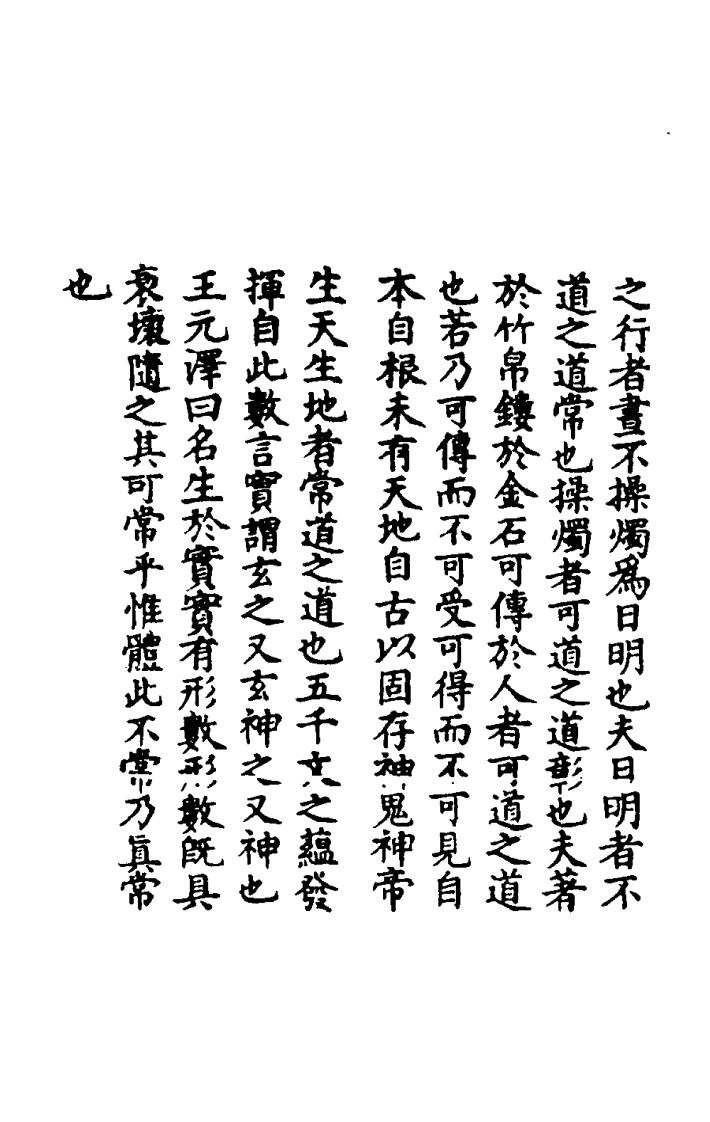 之行者晝不操燭爲日明也夫日明者不
道之道常也操燭者可道之道彰也夫著
於竹帛鏤於金石可傳於人者可道之道
也若乃可傳而不可受可得而不可見自
本自根未有天地自古以固存神鬼神帝
生天生地者常道之道也五千言之蘊發
揮自此數言實謂玄之又玄神之又神也
王元澤曰名生於實實有形數形數既具
衰壞隨之其可常乎惟體此不常乃眞常
也